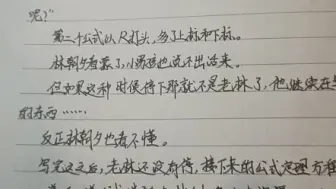 呢？”
第二个公式以R打头，多了上标和下标。
林朝夕看呆了，小男孩也说不出话来。
但如果这种时候停下那就不是老林了，他继续在
的东西……
反正林朝夕也看不懂。
写完这之后，老林还没有停，接下来的公式定理方程